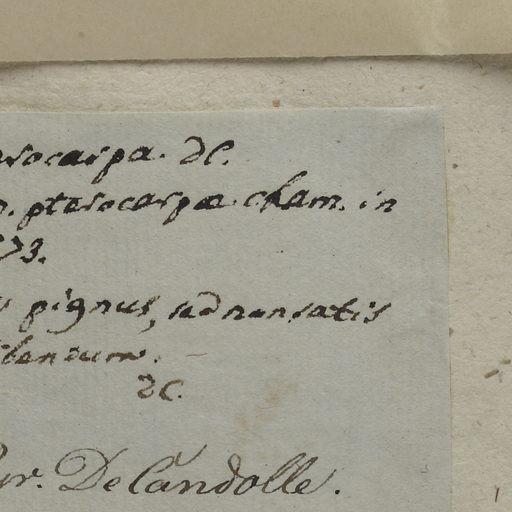 pterocarpa. DC.
pterocarpæ cham. in
73.
pignus, sed non satis
DC.
DeCandolle.